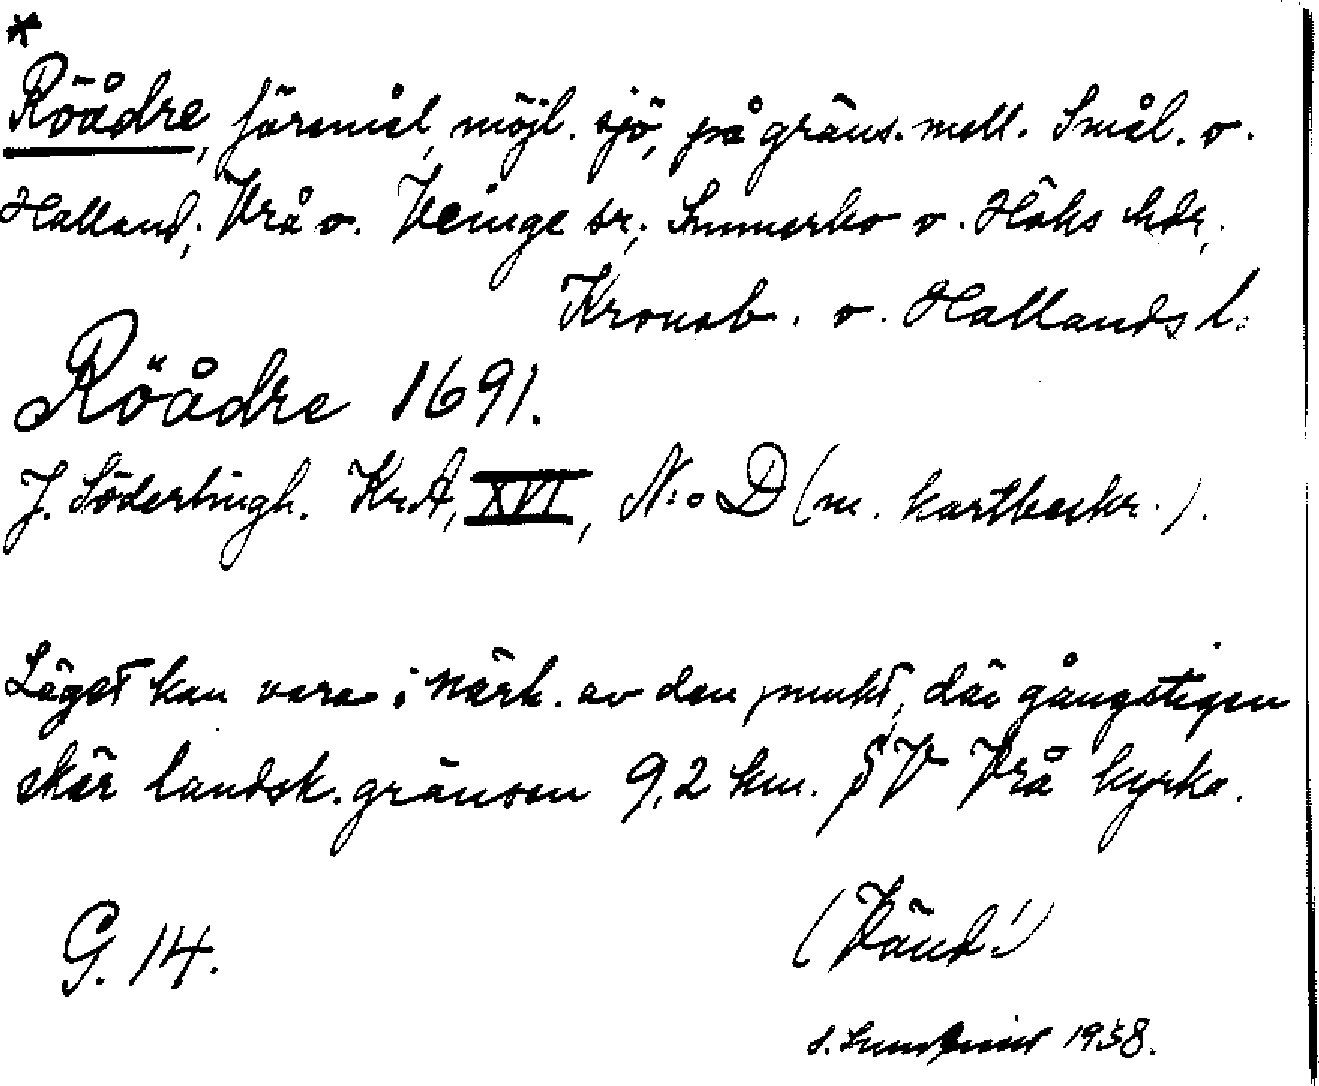 *
Röådre, föremål, möjl. sjö, på gräns. mell. Smål. o.
Halland; Vrå o. Veinge sr; Sunnerbo o. Höks hdr,
Kronob. o. Hallands l.
Röådre 1691.
J. Söderlingh. KrA, XVI, N:o D (m. kartbeskr.).
Läget kan vara i närh. av den punkt, där gångstigen
skär landsk.gränsen 9,2 km. SV Vrå kyrka.
(Vänd!)
G. 14.
1938.